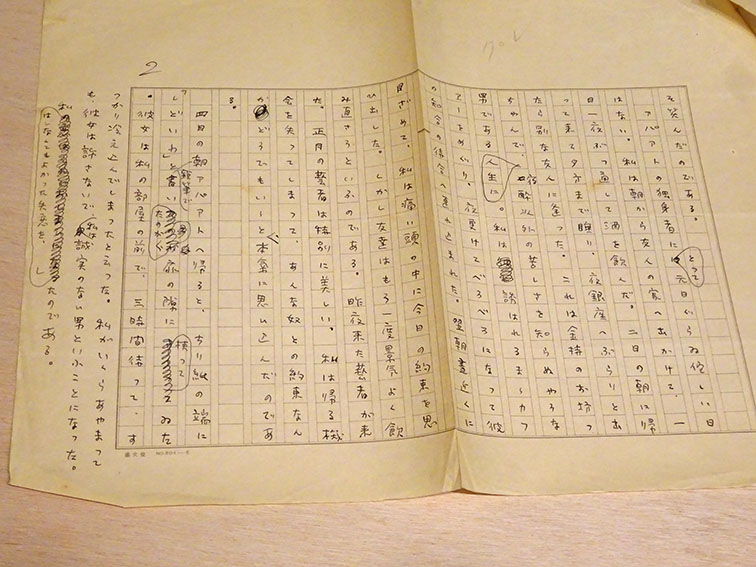 そ笑んだのである。
アパアトの独身者にとって元日ぐらゐ佗しい日
はない。私は朝から友人の家へ出かけて、一
日一夜ぶつ通して酒を飲んだ。二日の朝に帰
つて来て夕方まで眠り、夜銀座へぶらりと出
たら別な友人に逢つた。これは金持のお坊つ
ちやんで、宿酔以外の苦しさを知らぬやうな
男である。人生に 私は誘はれるまゝカフ
アーをめぐり、夜更けてべろべろになつて彼
の知合の待合へ連れ込まれた。翌朝昼近くに
目ざめて、私は痛い頭の中に今日の約束を思
ひ出した。しかし友達はもう一度景気よく飲
み直さうといふのである。昨夜来た藝者が来
た。正月の藝者は特別に美しい。私は帰る機
会を失つてしまつて、あんな奴との約束なん
かどうでもいゝと本気に思い込んだのであ
る。
四日の朝アパアトへ帰ると、ちり紙の端に
「しどいわ」と鉛筆で書いたのが扉の隙に挟つてゐた
。彼女は私の部屋の前で、三時間待つて、す
つかり冷え込んでしまつたと云つた。私がいくらあやまつて
も、彼女は許さないで、私は誠実のない男といふことになつた。
私たのである。
2